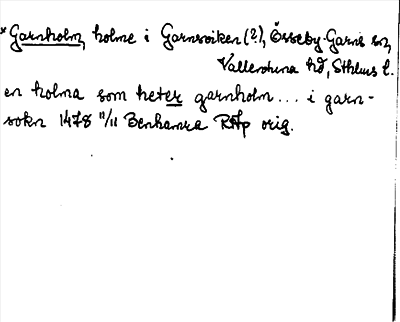 *Garnholm, holme i Garnsviken (?), Össeby-Garns sn,
Vallentuna hd, Sthlms l.
en holma som heter garnholm ... i garn-
sokn 1478 11/11 Benhamra RAp orig.